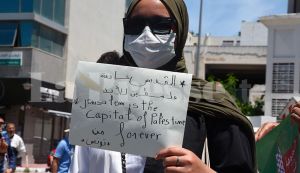 القدس عاصمة
فلسطين للأبد
Jerusalem is the
capital of Palestine
forever
تونس